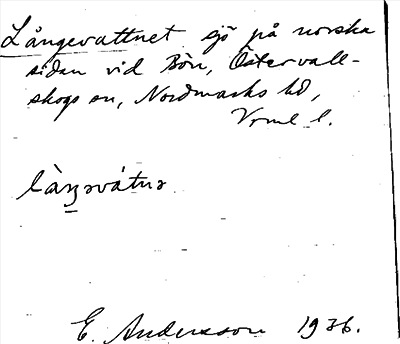 Långevattnet sjö på norska
sidan vid Bön, Östervall-
skogs sn, Nordmarks hd,
Vrml l.
làŋəvátnə
E. Andersson 1936.